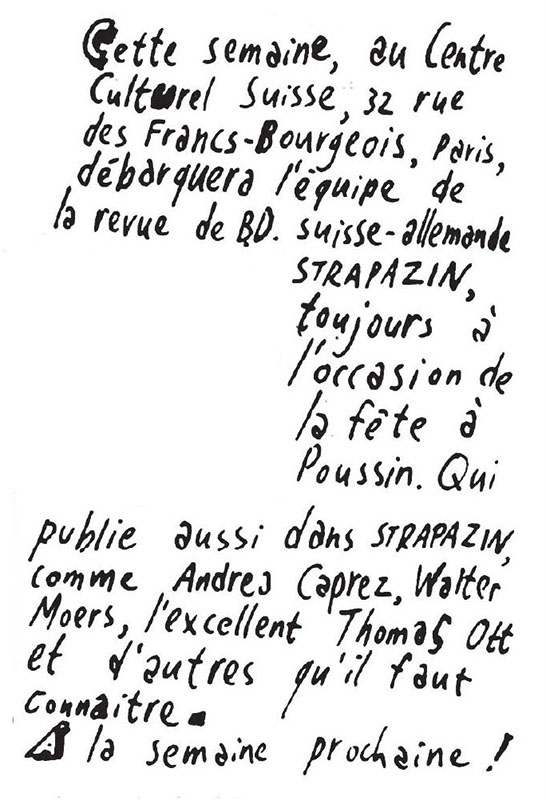 Cette semaine, au Centre
Culturel Suisse, 32 rue
des Francs-Bourgeois, Paris,
débarquera l'équipe de
la revue de B.D. suisse-allemande
STRAPAZIN,
toujours à
l'occasion de
la fête à
Poussin. Qui
publie aussi dans STRAPAZIN,
comme Andrea Caprez, Walter
Moers, l'excellent Thomas Ott
et d'autres qu'il faut
connaitre.
A la semaine prochaine !